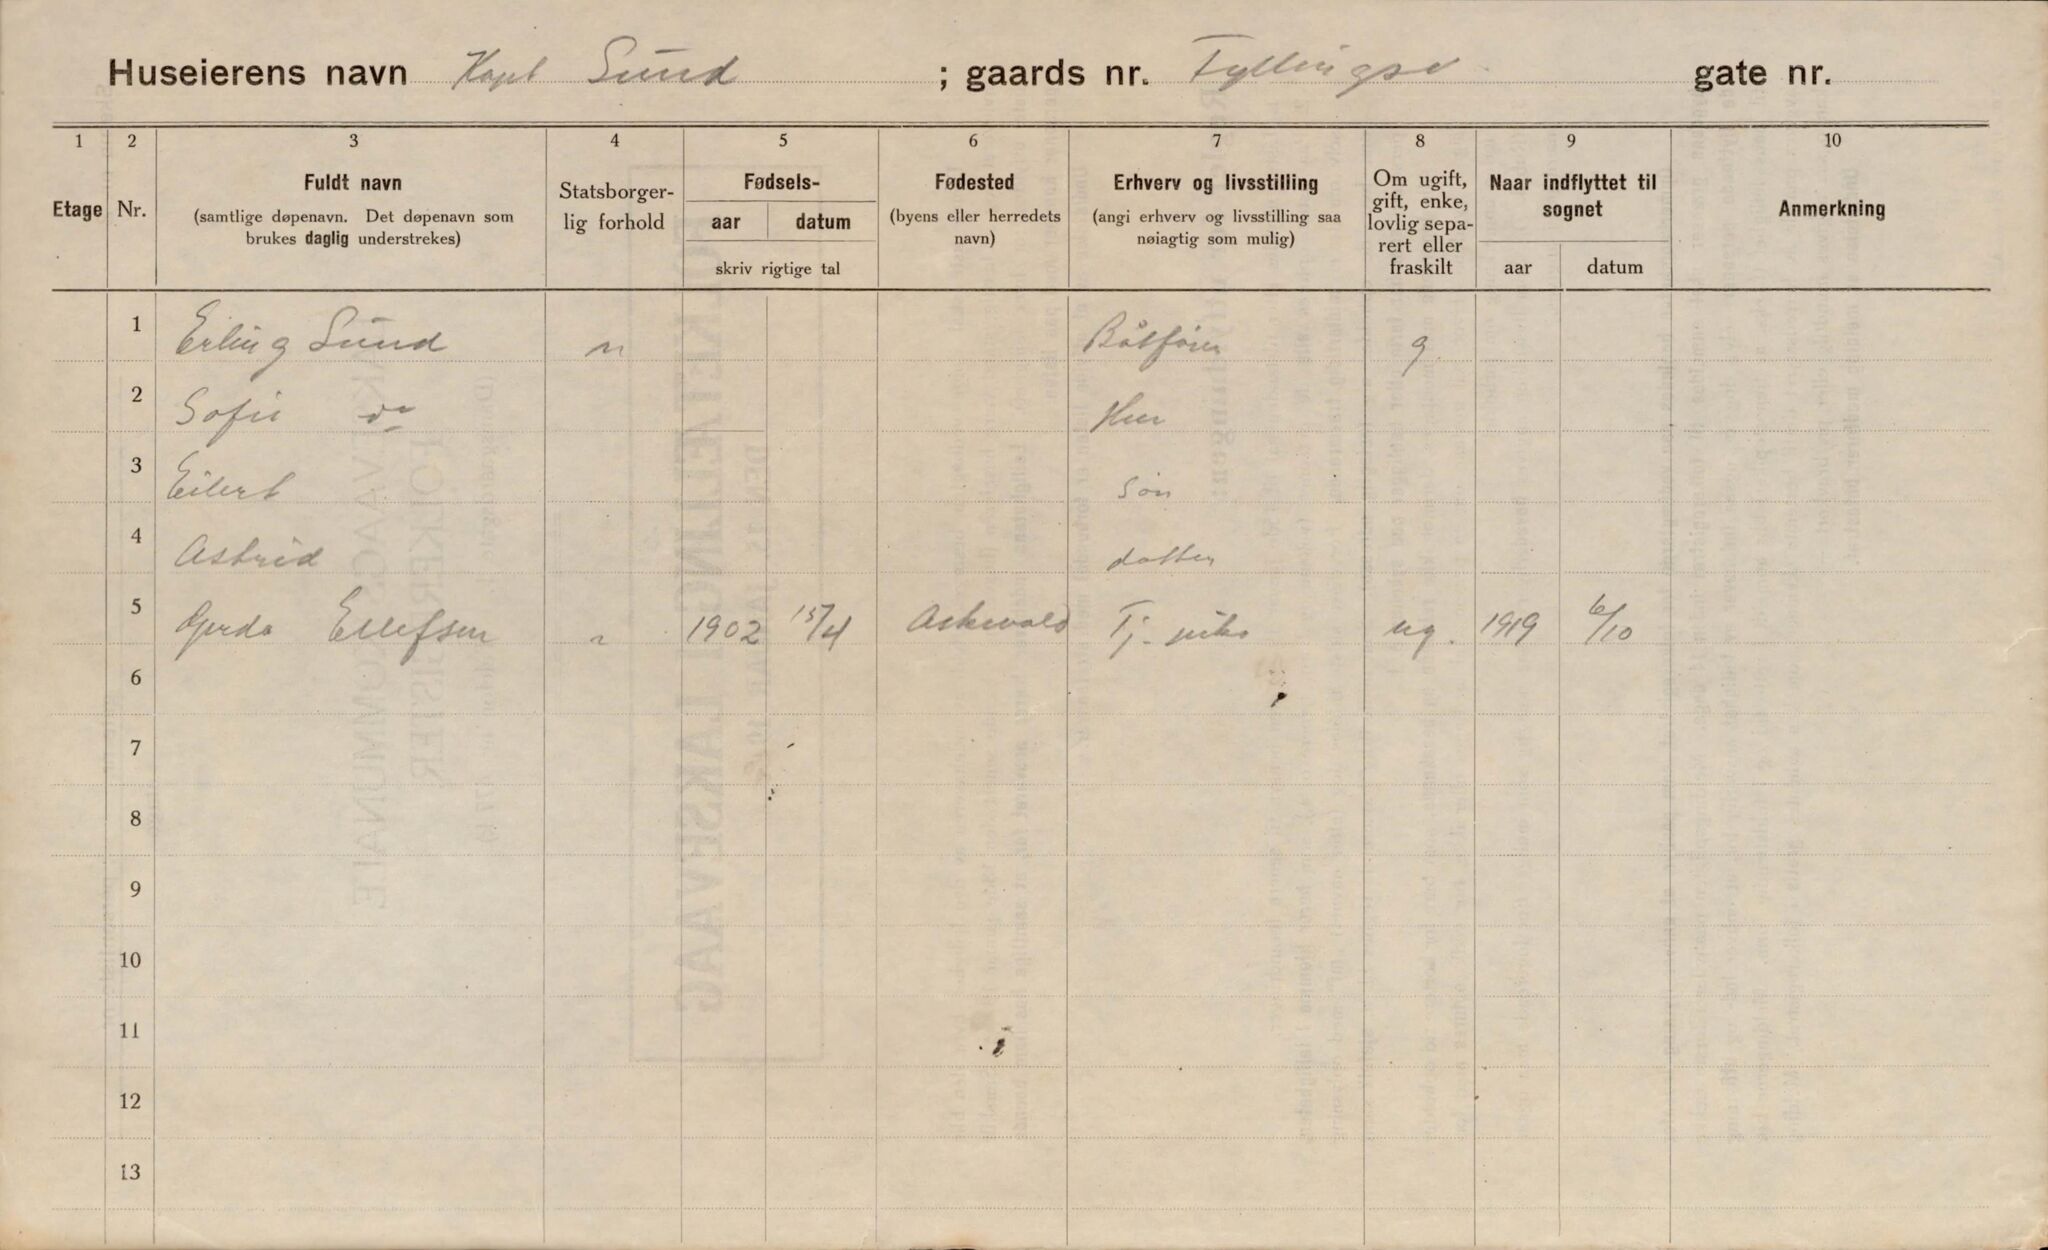 Huseierens navn Kapt Sund ; gaards nr. Fyllingsv gate nr.
1 2 3 4 5 6 7 8 9 10
Etage Nr. Fuldt navn (samtlige døpenavn. Det døpenavn som brukes daglig understrekes) Statsborger-lig forhold Fødsels- aar datum skriv rigtige tal Fødested (byens eller herredets navn) Erhverv og livsstilling (angi erhverv og livsstilling saa nøiagtig som mulig) Om ugift, gift, enke, lovlig sepa-rert eller fraskilt Naar indflyttet til sognet aar datum Anmerkning
1 Erling Sund n Båtfører g
2 Sofie do Hus
3 Eilert Søn
4 Astrid datter
5 Gerda Ellefsen n 1902 15/4 Askevold Tj. pike ug. 1919 6/10
6
7
8
9
10
11
12
13